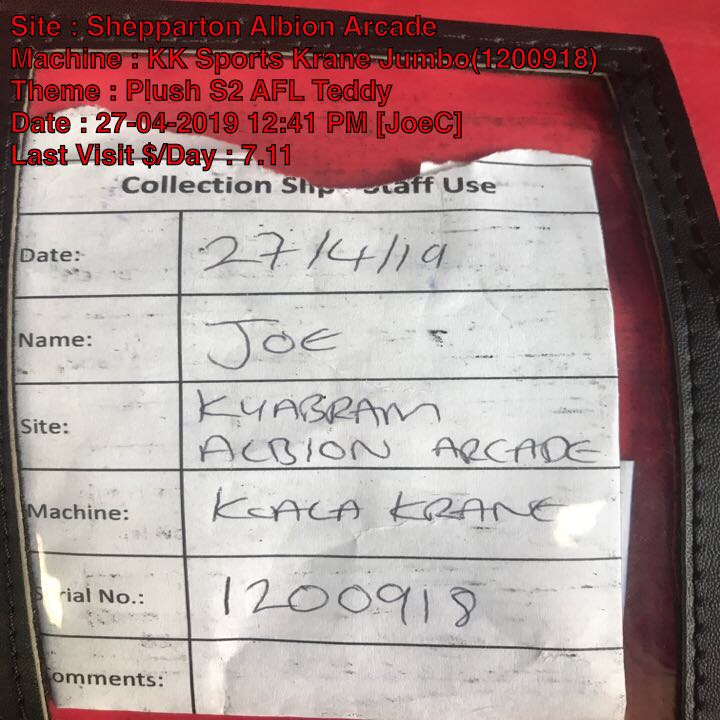 Site : Shepparton Albion Arcade
Machine : KK Sports Krane Jumbo(1200918)
Theme : Plush S2 AFL Teddy
Date : 27-04-2019 12:41 PM [JoeC]
Last Visit $/Day : 7.11
Collection Slip - Staff Use
Date: 27/4/19
Name: JOE
Site: KYABRAM
ALBION ARCADE
Machine: KOALA KRANE
Serial No.: 1200918
omments: